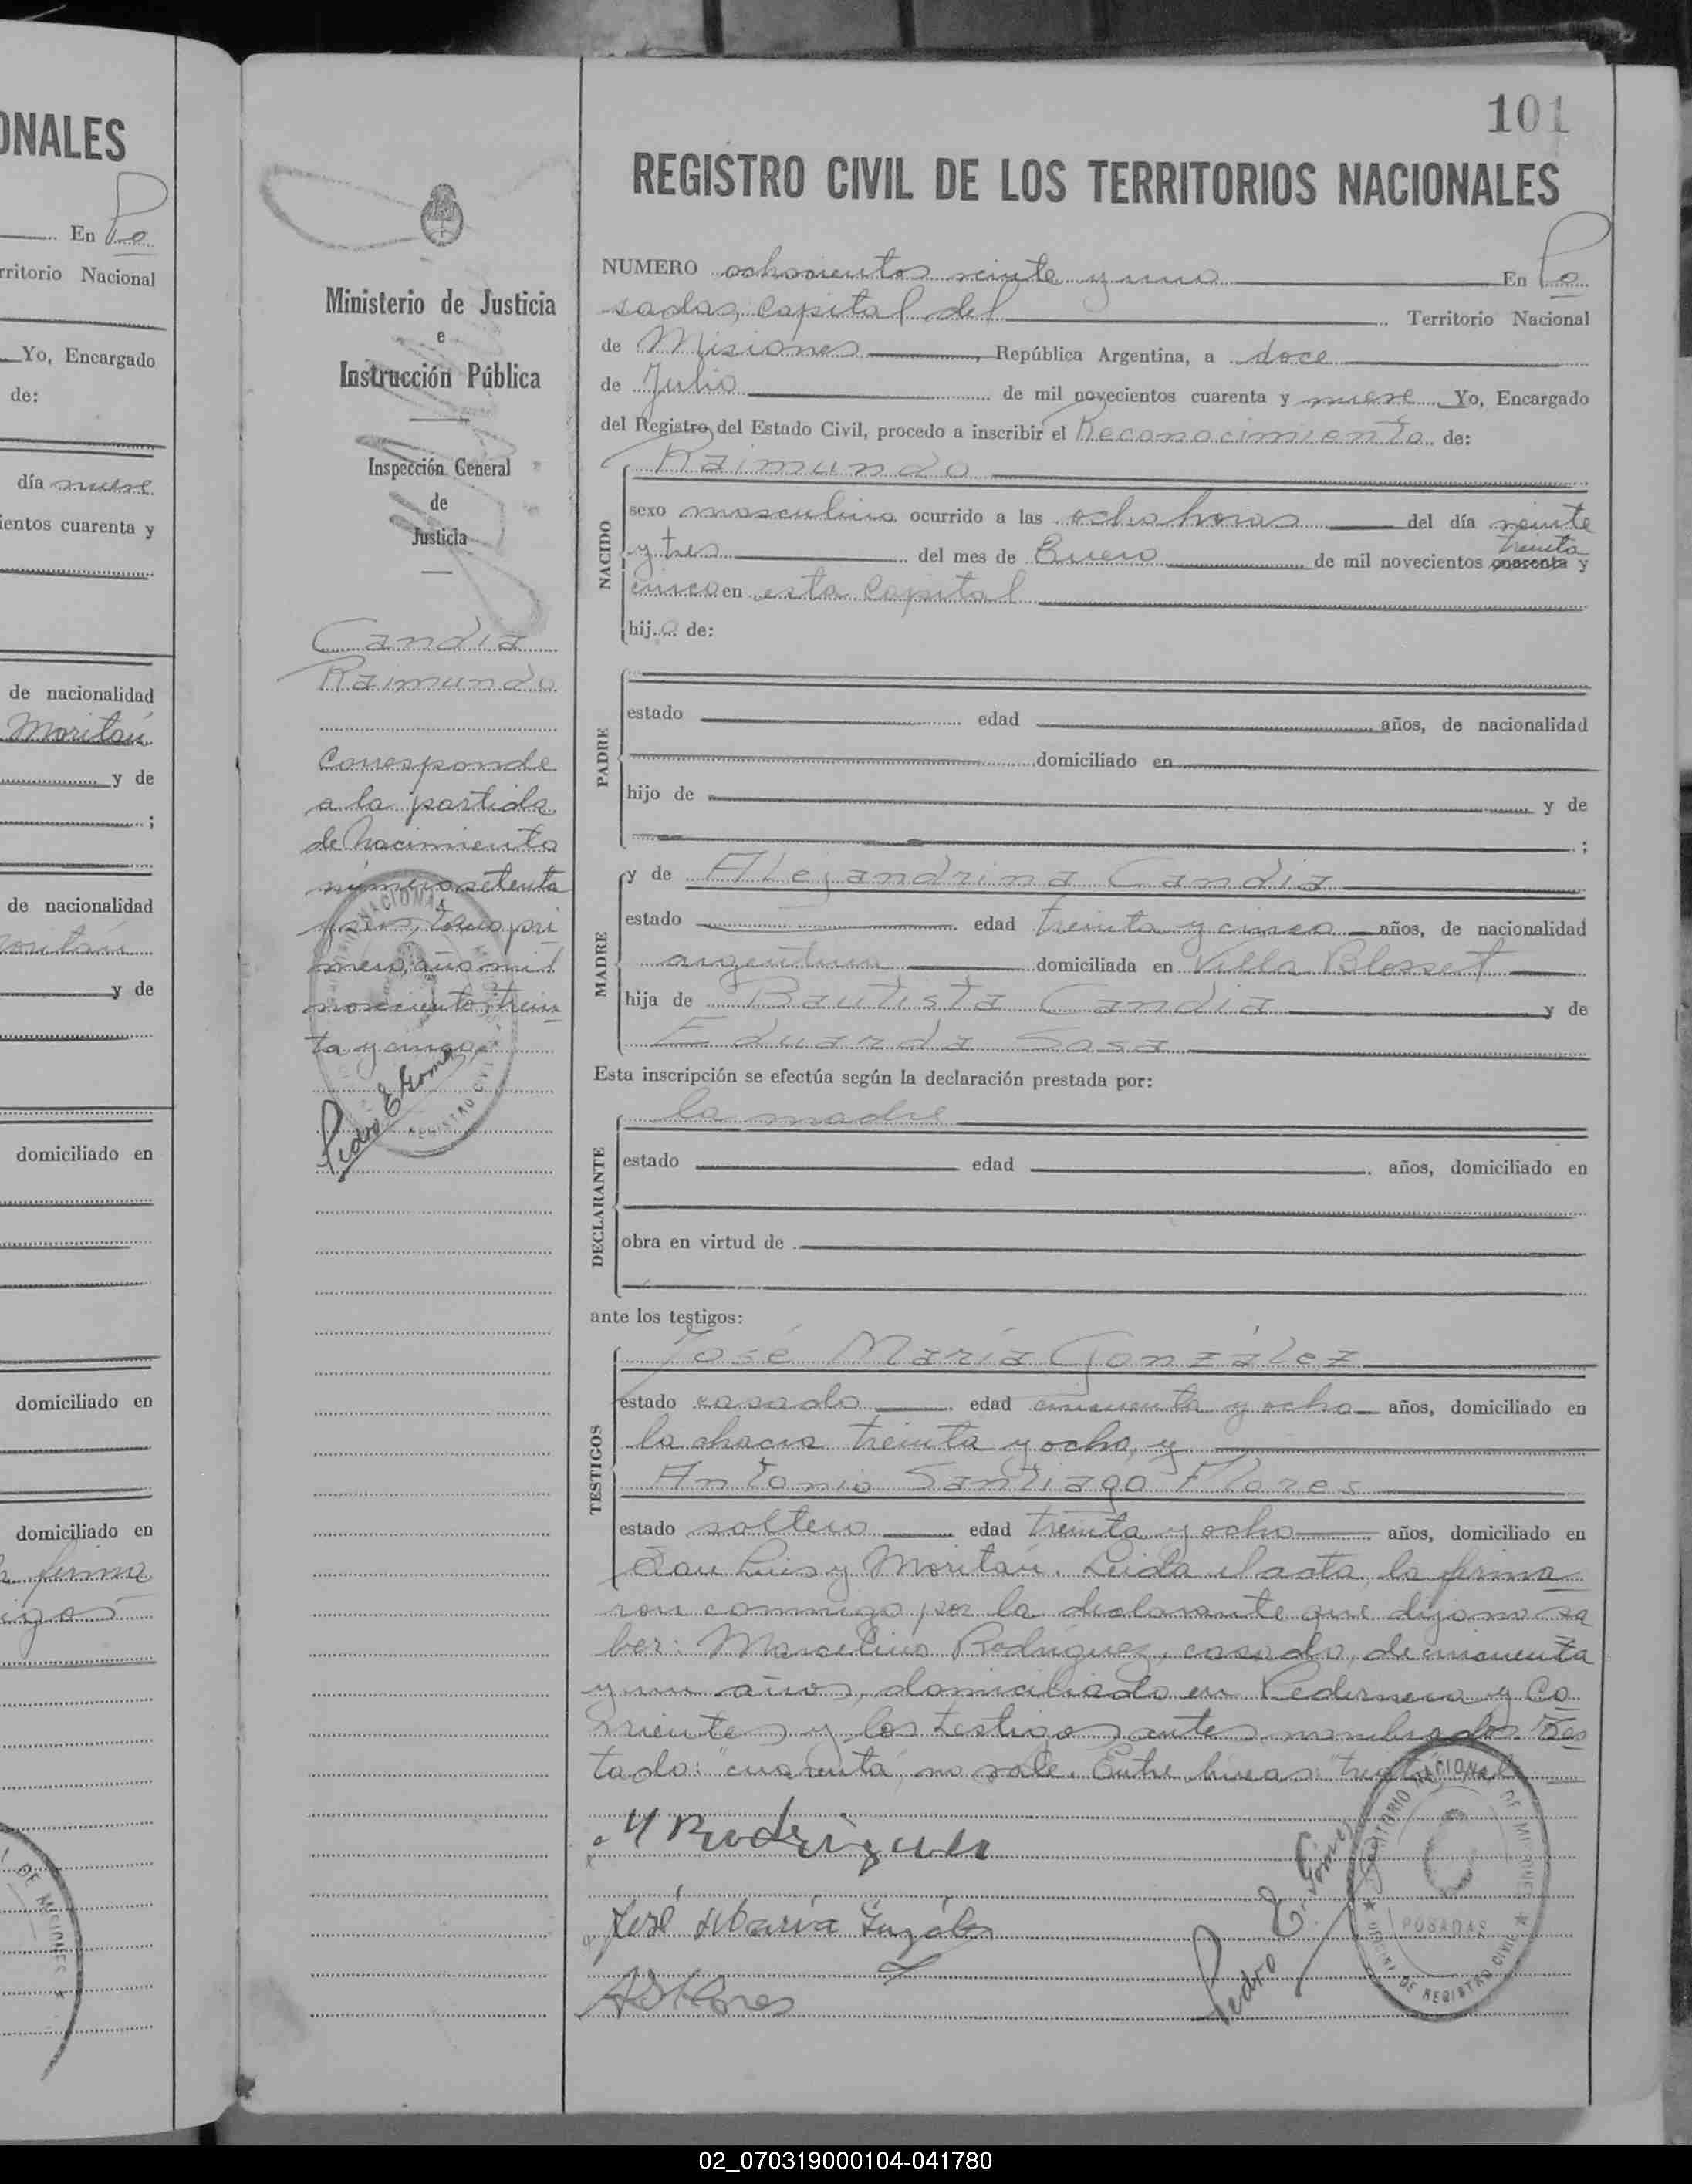 ONALES
En Po
rritorio Nacional
Yo, Encargado
de:
día nueve
ientos cuarenta y
de nacionalidad
Moritán
y de
;
de nacionalidad
Moritán
y de
domiciliado en
domiciliado en
domiciliado en
firma
DE MISIONES
Ministerio de Justicia
e
Instrucción Pública
Inspección General
de
Justicia
Candia
Raimundo
Corresponde
a la partida
de Nacimiento
número setenta
tomo pri
mero, año mil
novecientos trein
ta y cinco
Pedro E Gomez
101
REGISTRO CIVIL DE LOS TERRITORIOS NACIONALES
NUMERO ochocientos veinte y uno En Po
sadas, capital del Territorio Nacional
de Misiones, República Argentina, a doce
de Julio de mil novecientos cuarenta y nueve Yo, Encargado
del Registro del Estado Civil, procedo a inscribir el Reconocimiento de:
Raimundo
NACIDO
sexo masculino ocurrido a las ocho horas del día veinte
y tres del mes de Enero de mil novecientos cuarenta treinta y
cinco en esta Capital
hijo de:
PADRE
estado edad años, de nacionalidad
domiciliado en
hijo de y de
;
MADRE
y de Alejandrina Candia
estado edad treinta y cinco años, de nacionalidad
argentina domiciliada en Villa Blosset
hija de Bautista Candia y de
Eduarda Sosa
Esta inscripción se efectúa según la declaración prestada por:
DECLARANTE
la madre
estado edad años, domiciliado en
obra en virtud de
ante los testigos:
TESTIGOS
José María González
estado casado edad cincuenta y ocho años, domiciliado en
la chacra treinta y ocho, y
Antonio Santiago Flores
estado soltero edad treinta y ocho años, domiciliado en
San Luis y Moritán. Leida el acta, la firma
ron conmigo, por la declarante que dijo no sa
ber: Marcelino Rodriguez, casado, de cincuenta
y un años, domiciliado en Pedernera y Co
rrientes y los testigos antes nombrados. Tes
tado: "cuarenta" no vale. Entre lineas: "treinta" vale
M Rodriguez
José Maria González
A S Flores
Pedro E. Gómez
TERRITORIO NACIONAL DE MISIONES
POSADAS
OFICINA DE REGISTRO CIVIL
02_070319000104-041780